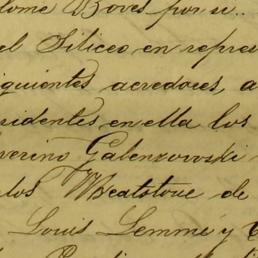 lome Boves por si..
el Siliceo en repres
iguientes acredores, a
sidentes en ella los
verino Galenzowski
los Wheatstone de
Louis Lemmé y C